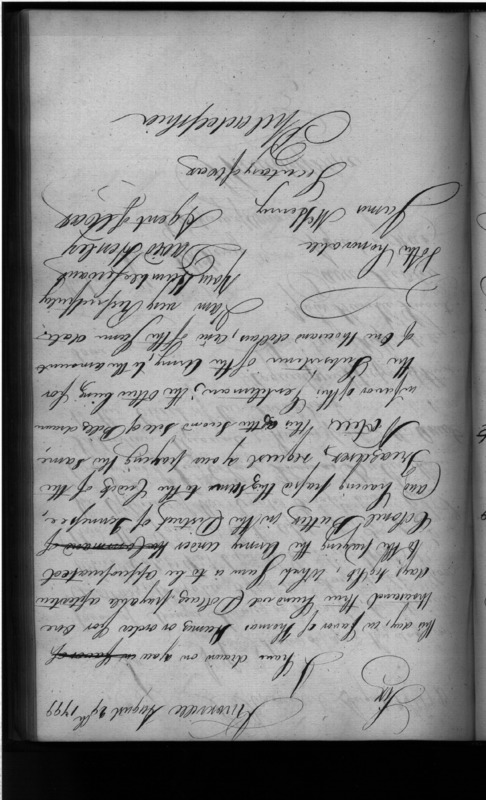 Knoxville August 29th 1799
Sir
I have drawn on you in favor of
this day, in favor of Thomas or order for one
thousand three hundred Dollars, payable after
days sight, which sum is to be appropriated
to the paying the Army under the Command of
Colonel Butler in the District of Tennessee,
and having passed this sum to the Credit of the
Treasurer, request of your paying the same,
Note, this is the second sett of Bills, drawn
in favor of this Gentleman; the other being for
the Subsistence of the Army, to the amount
of One thousand dollars, and of the same date.
I am very Respectfully
Your humble servant
David Henley
Agent of War
To the honorable
James McHenry
Secretary of War
Philadelphia